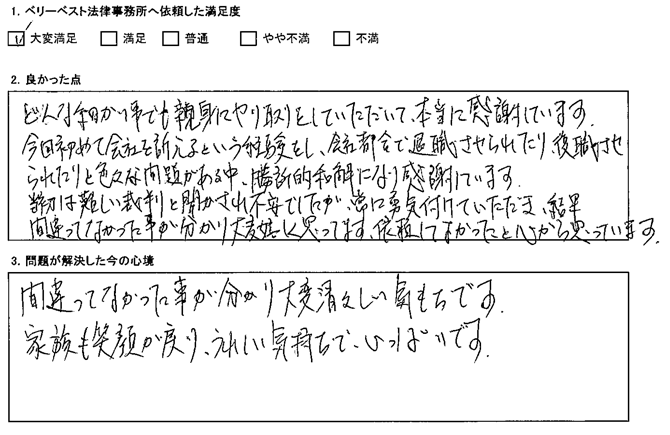 1. ベリーベスト法律事務所へ依頼した満足度
大変満足 満足 普通 やや不満 不満
2. 良かった点
どんな細かい事でも親身にやり取りをしていただいて、本当に感謝しています。
今回初めて会社を訴えるという経験をし、会社都合で退職させられたり、復職させ
られたりと色々な問題がある中、勝訴的和解になり感謝しています。
難しい裁判と聞かされ不安でしたが、常に勇気付けていただき、結果
間違ってなかった事が分かり大変嬉しく思ってます。依頼してよかったと心から思っています。
3. 問題が解決した今の心境
間違ってなかった事が分かり大変清々しい気もちです。
家族も笑顔が戻り、うれしい気持ちで、いっぱいです。